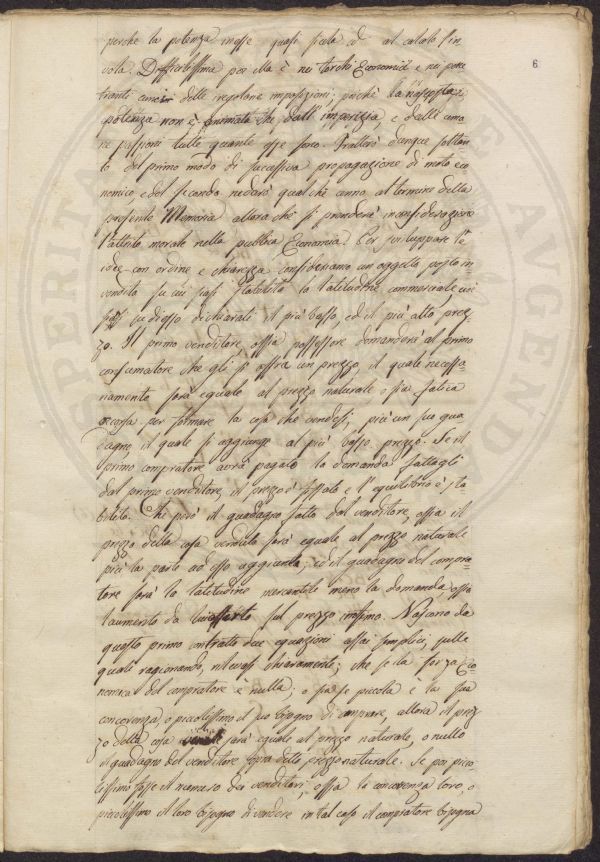 6
perche la potenza inesse quasi sicla ed al calcolo s'in
vola. Difficilissima poi ella è ne torchi Economici e ne pene
tranti cunei delle regolane imposizioni; poichè la riflessa
potenza non è animata che dall' imperizia, e dall' uma
ne passioni tutte quante esse sono. Tratterò dunque soltan
to del primo modo di successiva propagazione di moto eco
nomico, e del secondo nedarò qualchè cenno al termine della
presente Memoria allora chè si prenderà in considerazione
l'attrito morale nella publica Economia. Per sviluppare l'
idee con ordine e chiarezza consideriamo un oggetto posto in
vendita su cui siasi stabilita la latitudine commerciale, cioè
siasi su di esso dichiarati il più basso, ed il più alto prez-
zo. Il primo venditore, ossia possessore domanderà al primo
consumatore che gli si offra un prezzo, il quale necessa-
riamente sarà eguale al prezzo naturale o sia fatica
occorsa per formare la cosa che vendesi, più un suo gua
dagno, il quale si aggiunge al più basso prezzo. Se il
primo compratore avrà pagato la domanda fattagli
dal primo venditore, il prezzo è fissato e l'equilibrio è sta
bilito. Che però il guadagno fatto dal venditore, ossia il
prezzo della cosa venduta sarà eguale al prezzo naturale
più la parte ad esso aggiunta; ed il guadagno del compra-
tore sarà la latitudine mercantile meno la domanda ossia
l'aumento da lui offerto sul prezzo infimo. Nascono da
questo primo contratto due equazioni assai semplici, sulle
quale ragionando, rilevasi chiaramente; che se la forza Eco-
nomica del compratore è nulla; o sia se piccola è la sua
concorenza, o piccolissimo il suo bisogno di comprare, allora il prez
zo della cosa sarà eguale al prezzo naturale, o nullo
il guadagno del venditore sopra detto prezzo naturale. Se poi pico-
lissimo fosse il numero dei venditori; ossia la concorenza loro, o
piccolissimo il loro bisogno di vendere in tal caso il compratore bisogna